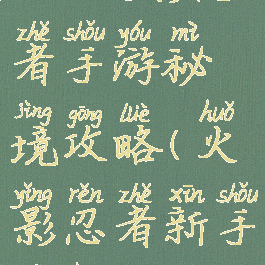 zhě shǒu yóu mì
者手游秘
jìng gōng lüè huǒ
境攻略(火
yǐng rěn zhě xīn shǒu
影忍者新手